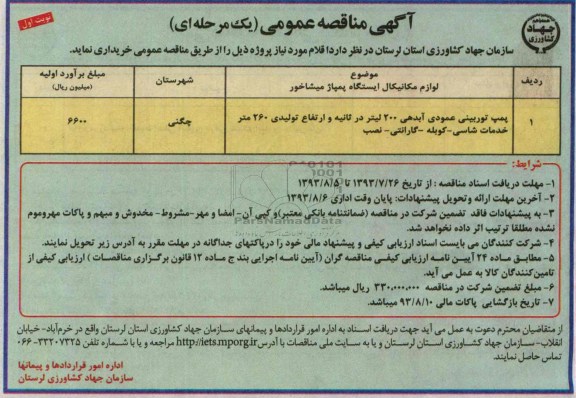 نوبت اول
آگهی مناقصه عمومی (یک مرحله ای)
جهاد
کشاورزی
سازمان جهاد کشاورزی استان لرستان در نظر دارد؛ اقلام مورد نیاز پروژه ذیل را از طریق مناقصه عمومی خریداری نماید.
ردیف
موضوع
لوازم مکانیکال ایستگاه پمپاژ میشاخور
شهرستان
مبلغ برآورد اولیه
(میلیون ریال)
۱
پمپ توربینی عمودی آبدهی ۲۰۰ لیتر در ثانیه و ارتفاع تولیدی ۲۶۰ متر
خدمات شاسی-کوبله -گارانتی- نصب
چگنی
۶۶۰۰
شرایط:
۱- مهلت دریافت اسناد مناقصه : از تاریخ ۱۳۹۳/۷/۲۶ تا ۱۳۹۳/۸/۵
۲- آخرین مهلت ارائه وتحویل پیشنهادات: پایان وقت اداری ۱۳۹۳/۸/۶
۳- به پیشنهادات فاقد تضمین شرکت در مناقصه (ضمانتنامه بانکی معتبر)و کپی آن- امضا و مهر-مشروط- مخدوش و مبهم و پاکات مهروموم
نشده مطلقا ترتیب اثر داده نخواهد شد.
۴- شرکت کنندگان می بایست اسناد ارزیابی کیفی و پیشنهاد مالی خود را درپاکتهای جداگانه در مهلت مقرر به آدرس زیر تحویل نمایند.
۵- مطابق ماده ۲۴ آیین نامه ارزیابی کیفی مناقصه گران (آیین نامه اجرایی بند ج ماده ۱۲ قانون برگزاری مناقصات ) ارزیابی کیفی از
تامین‌کنندگان کالا به عمل می آید.
۶- مبلغ تضمین شرکت در مناقصه ۳۳۰,۰۰۰,۰۰۰ ریال میباشد.
۷- تاریخ بازگشایی پاکات مالی ۹۳/۸/۱۰ میباشد.
ParsNamadData
از متقاضیان محترم دعوت به عمل می آید جهت دریافت اسناد به اداره امور قراردادها و پیمانهای سازمان جهاد کشاورزی استان لرستان واقع در خرم‌آباد- خیابان
انقلاب-سازمان جهاد کشاورزی استان لرستان و یا به سایت ملی مناقصات با آدرس http://iets.mporg.ir مراجعه و یا با شماره تلفن ۳۳۲۰۷۳۲۵-۰۶۶
تماس حاصل نمایند.
اداره امور قراردادها و پیمانها
سازمان جهاد کشاورزی لرستان